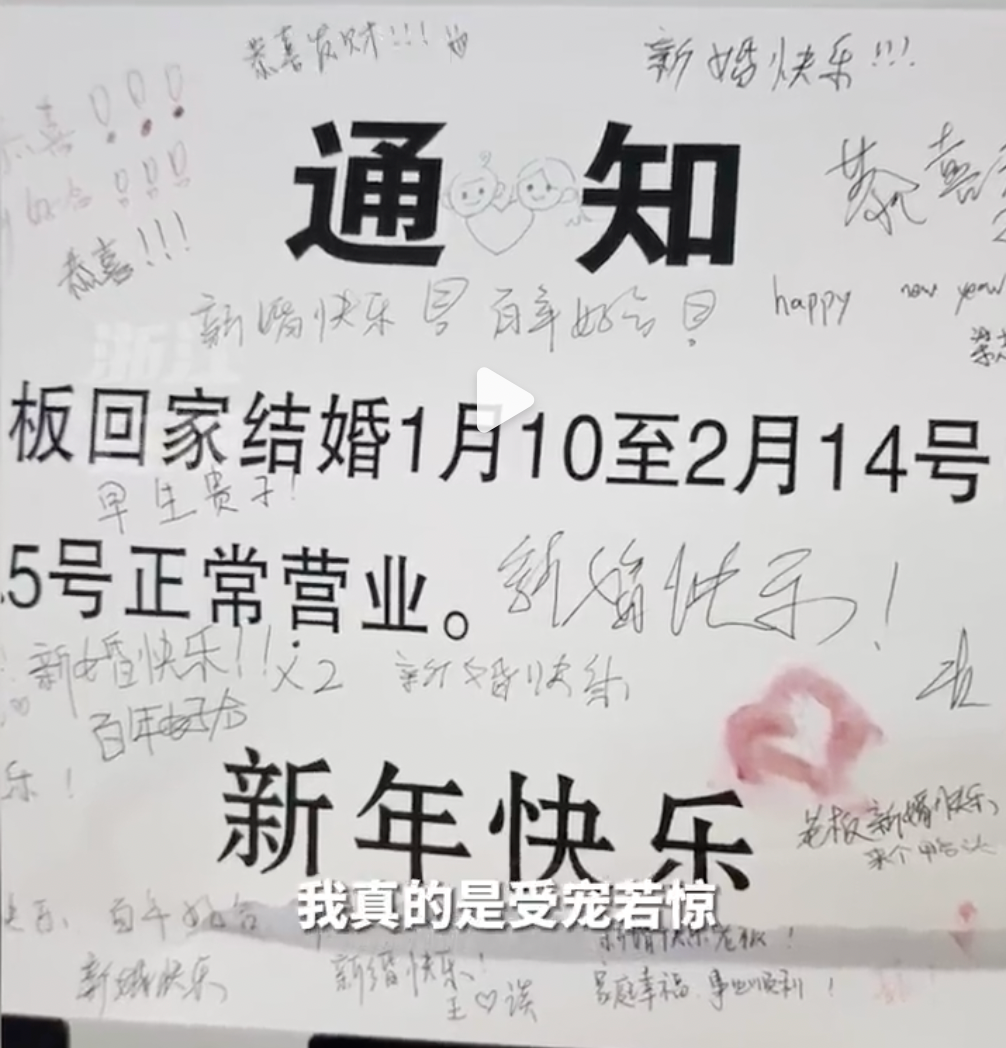 恭喜发财!!!
新婚快乐!!!
恭喜
通知
恭喜!!!
新婚快乐 百年好合
happy new year
浙江
板回家结婚1月10至2月14号
早生贵子!
5号正常营业。
新婚快乐!
新婚快乐!!x2
新婚快乐
百年好合
乐!
新年快乐
老板新婚快乐
我真的是受宠若惊
百年好合
新婚快乐老板!
新婚快乐
新婚快乐!
王♡谈
家庭幸福 事业顺利!